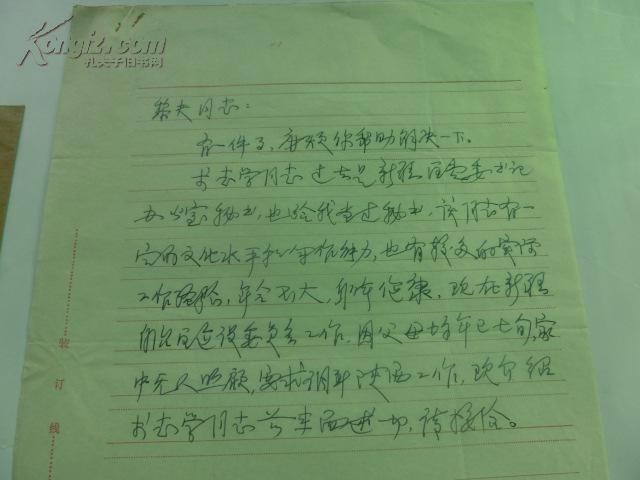 Kongfz.com
孔夫子旧书网
黎夫同志：
有一件事，麻烦你帮助解决一下。
志学同志过去是新疆区党委书记
办公室秘书，也给我当过秘书，该同志有一
定的文化水平和工作能力，也有较多的实际
工作经验，年令不大，身体健康，现在新疆
自治区建设委员会工作，因父母均年已七旬，家
中无人照顾，要求调来陕西工作，现介绍
志学同志前来面述一切，请接洽。
装
订
线